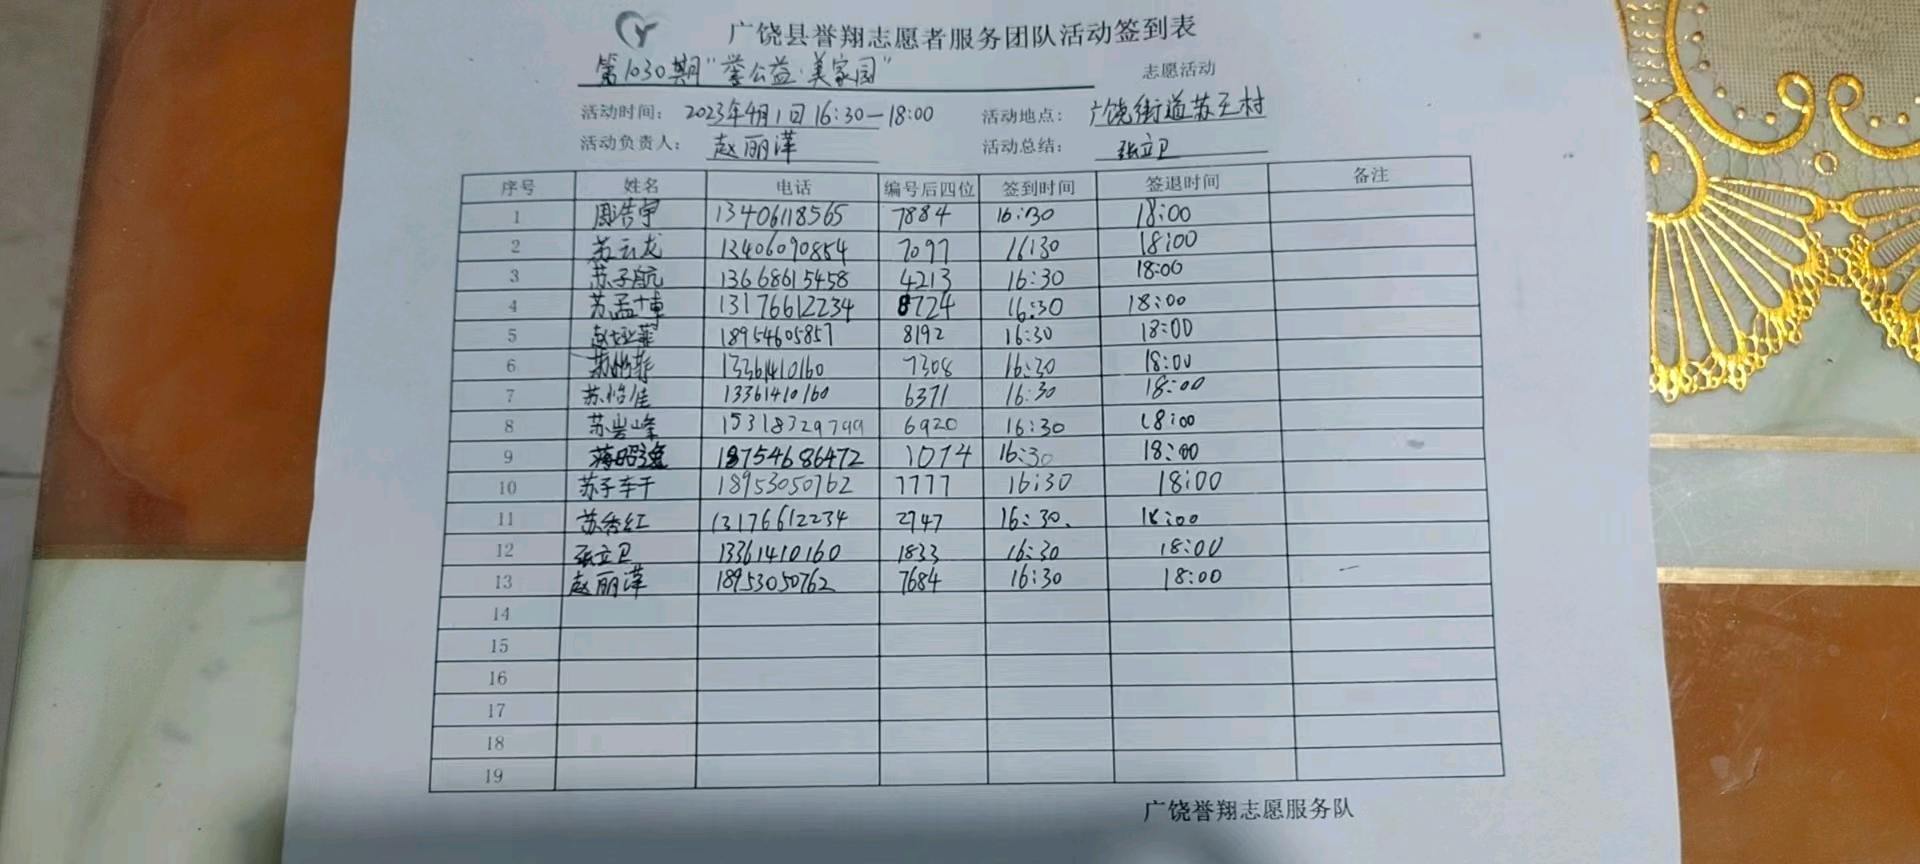 广饶县誉翔志愿者服务团队活动签到表
第1030期"誉公益·美家园" 志愿活动
活动时间: 2023年4月1日16:30—18:00 活动地点: 广饶街道苏王村
活动负责人: 赵丽萍 活动总结: 张立卫
序号 姓名 电话 编号后四位 签到时间 签退时间 备注
1 周浩宇 13406118565 7884 16:30 18:00
2 苏云龙 13406090854 7097 16:30 18:00
3 苏子航 13668615458 4213 16:30 18:00
4 苏孟博 13176612234 8724 16:30 18:00
5 赵菲 18954605857 8192 16:30 18:00
6 苏怡菲 13361410160 7308 16:30 18:00
7 苏怡佳 13361410160 6371 16:30 18:00
8 苏岩峰 15318329799 6920 16:30 18:00
9 18754686472 1074 16:30 18:00
10 苏子车干 18953050762 7777 16:30 18:00
11 苏秀红 13176612234 2747 16:30. 18:00
12 张立卫 13361410160 1833 16:30 18:00
13 赵丽萍 18953050762 7684 16:30 18:00
14
15
16
17
18
19
广饶誉翔志愿服务队